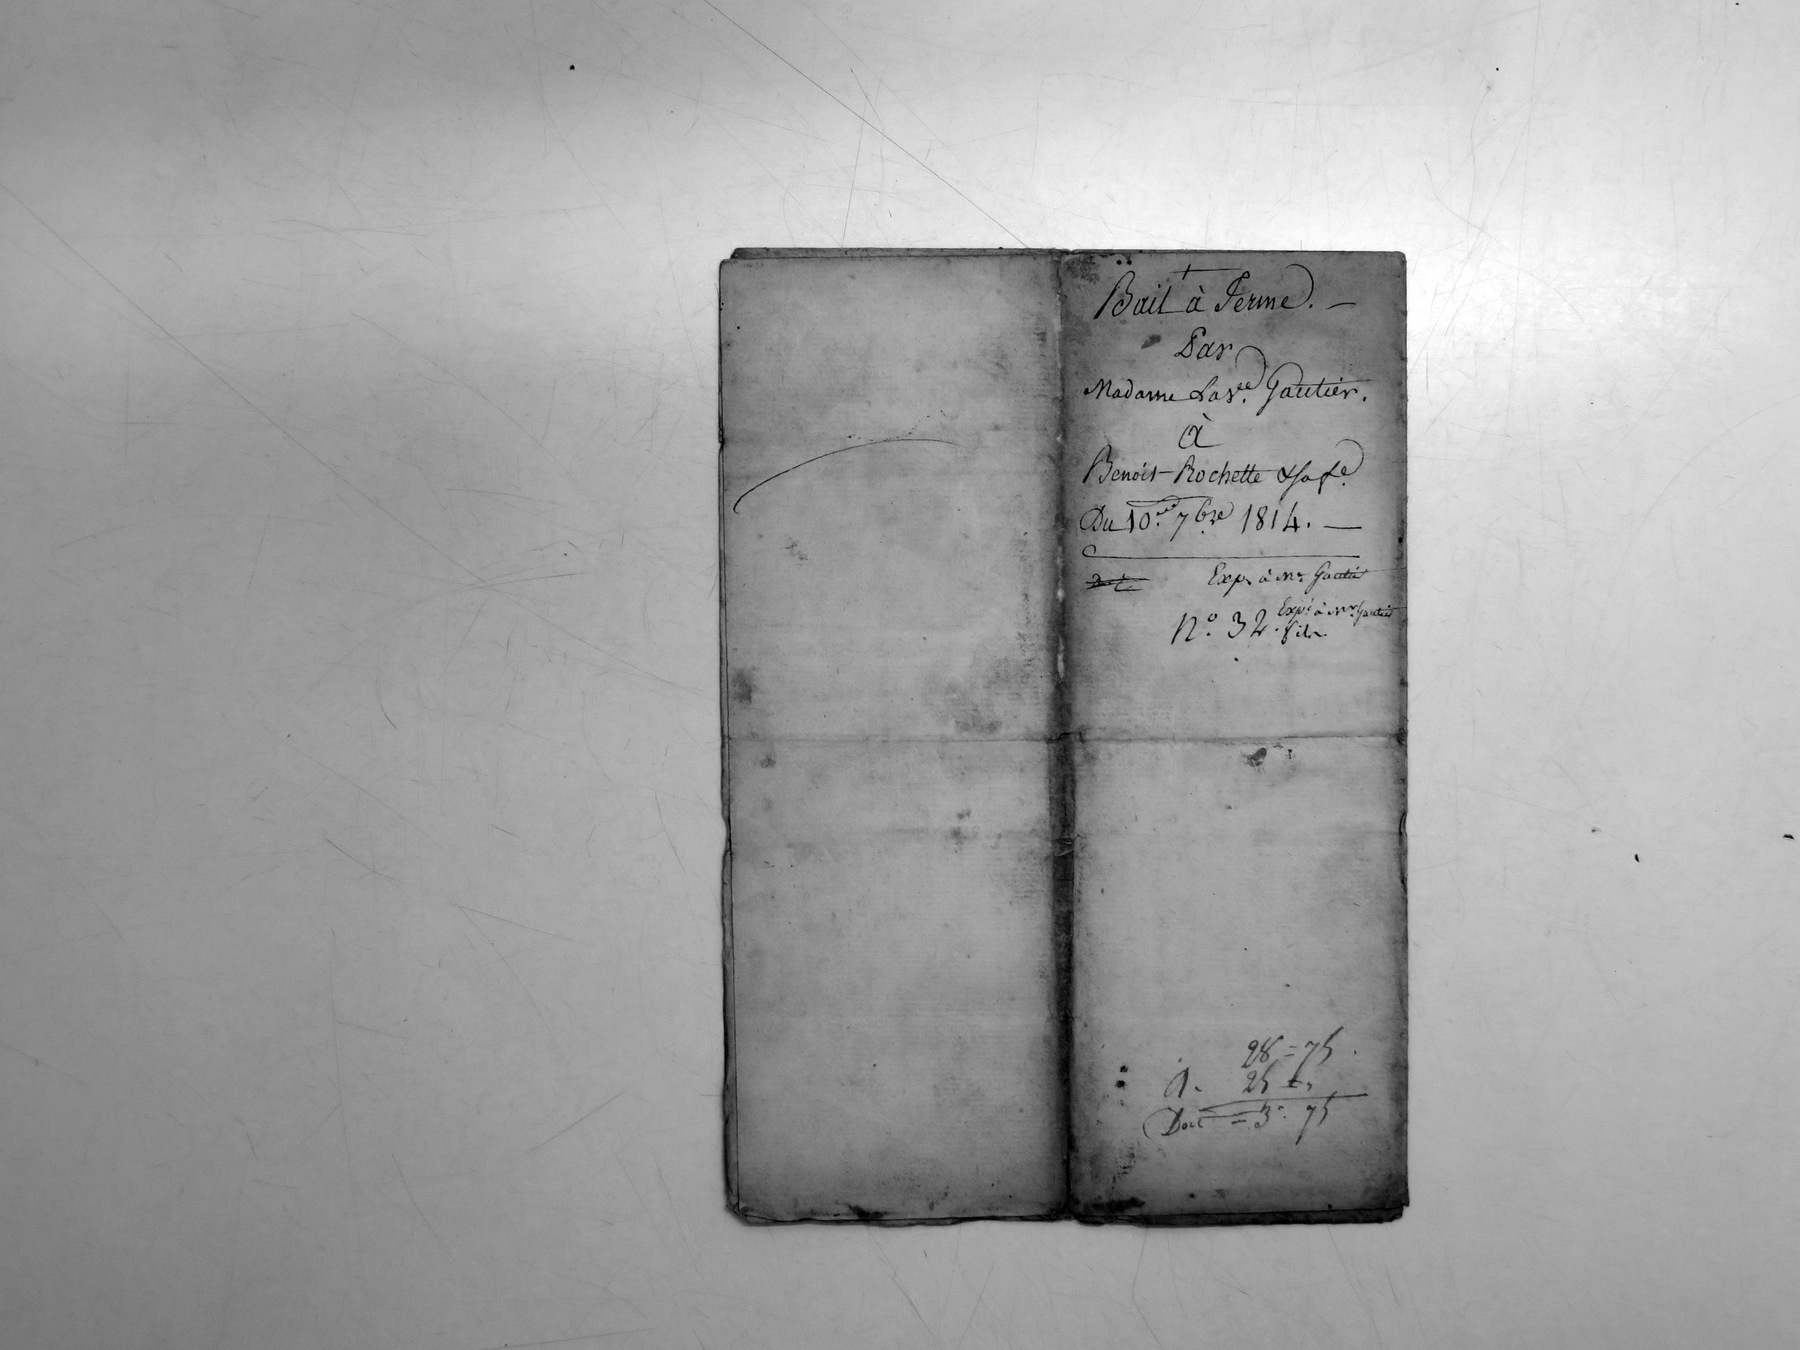 Bail à ferme. —
Par
Madame La Vve. Gautier.
à
Benoit Rochette & sa fe.
Du 10. 7bre 1814. —
Exp. à Mr Gautier
N°. 32. Expé à Mr. Gautier
fils.
28 = 75
A. 25 = "
Doit = 3 = 75